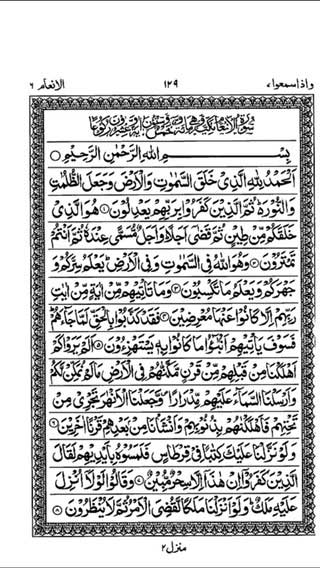 واذاسمعوا، ١٢٩ الانعام ٦
بِسْمِ اللهِ الرَّحْمٰنِ الرَّحِيْمِ ○
اَلْحَمْدُ لِلّٰهِ الَّذِيْ خَلَقَ السَّمٰوٰتِ وَالْاَرْضَ وَجَعَلَ الظُّلُمٰتِ
وَالنُّوْرَ ثُمَّ الَّذِيْنَ كَفَرُوْا بِرَبِّهِمْ يَعْدِلُوْنَ ① هُوَ الَّذِيْ
خَلَقَكُمْ مِّنْ طِيْنٍ ثُمَّ قَضٰۤى اَجَلًا وَاَجَلٌ مُّسَمًّى عِنْدَهٗ ثُمَّ اَنْتُمْ
تَمْتَرُوْنَ ② وَهُوَ اللهُ فِي السَّمٰوٰتِ وَفِي الْاَرْضِ يَعْلَمُ سِرَّكُمْ وَ
جَهْرَكُمْ وَيَعْلَمُ مَا تَكْسِبُوْنَ ③ وَمَا تَاْتِيْهِمْ مِّنْ اٰيَةٍ مِّنْ اٰيٰتِ
رَبِّهِمْ اِلَّا كَانُوْا عَنْهَا مُعْرِضِيْنَ ④ فَقَدْ كَذَّبُوْا بِالْحَقِّ لَمَّا جَآءَهُمْ
فَسَوْفَ يَاْتِيْهِمْ اَنْۢبٰٓؤُا مَا كَانُوْا بِهٖ يَسْتَهْزِءُوْنَ ⑤ اَلَمْ يَرَوْا كَمْ
اَهْلَكْنَا مِنْ قَبْلِهِمْ مِّنْ قَرْنٍ مَّكَّنّٰهُمْ فِي الْاَرْضِ مَا لَمْ نُمَكِّنْ لَّكُمْ
وَاَرْسَلْنَا السَّمَآءَ عَلَيْهِمْ مِّدْرَارًا وَّجَعَلْنَا الْاَنْهٰرَ تَجْرِيْ مِنْ
تَحْتِهِمْ فَاَهْلَكْنٰهُمْ بِذُنُوْبِهِمْ وَاَنْشَاْنَا مِنْۢ بَعْدِهِمْ قَرْنًا اٰخَرِيْنَ ⑥
وَلَوْ نَزَّلْنَا عَلَيْكَ كِتٰبًا فِيْ قِرْطَاسٍ فَلَمَسُوْهُ بِاَيْدِيْهِمْ لَقَالَ
الَّذِيْنَ كَفَرُوْۤا اِنْ هٰذَاۤ اِلَّا سِحْرٌ مُّبِيْنٌ ⑦ وَقَالُوْا لَوْلَاۤ اُنْزِلَ
عَلَيْهِ مَلَكٌ وَلَوْ اَنْزَلْنَا مَلَكًا لَّقُضِيَ الْاَمْرُ ثُمَّ لَا يُنْظَرُوْنَ ⑧
منزل ٢